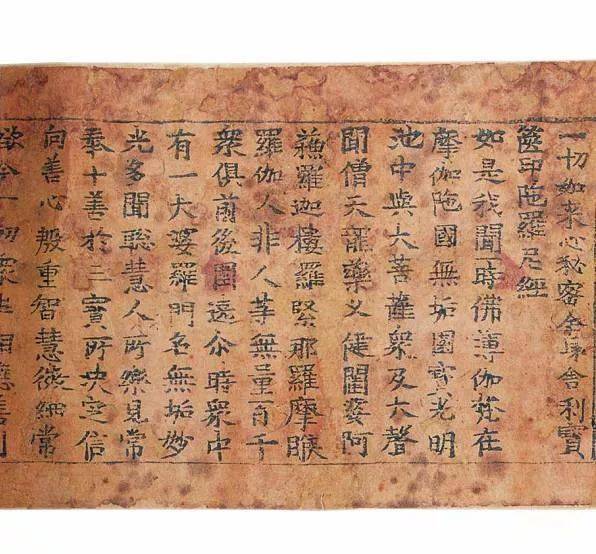 一切如来心秘密全身舍利寶
篋印陀羅尼經
如是我聞一時佛薄伽梵在
摩伽陀國無垢園寶光明
池中與大菩薩衆及大聲
聞僧天龍藥叉健闥婆阿
蘓羅迦樓羅緊那羅摩睺
羅伽人非人等無量百千
衆俱前後圍遶尒時衆中
有一大婆羅門名無垢妙
光多聞聰慧人所樂見常
奉十善於三寶所決定信
向善心殷重智慧微細常
欲令一切衆生相應善利